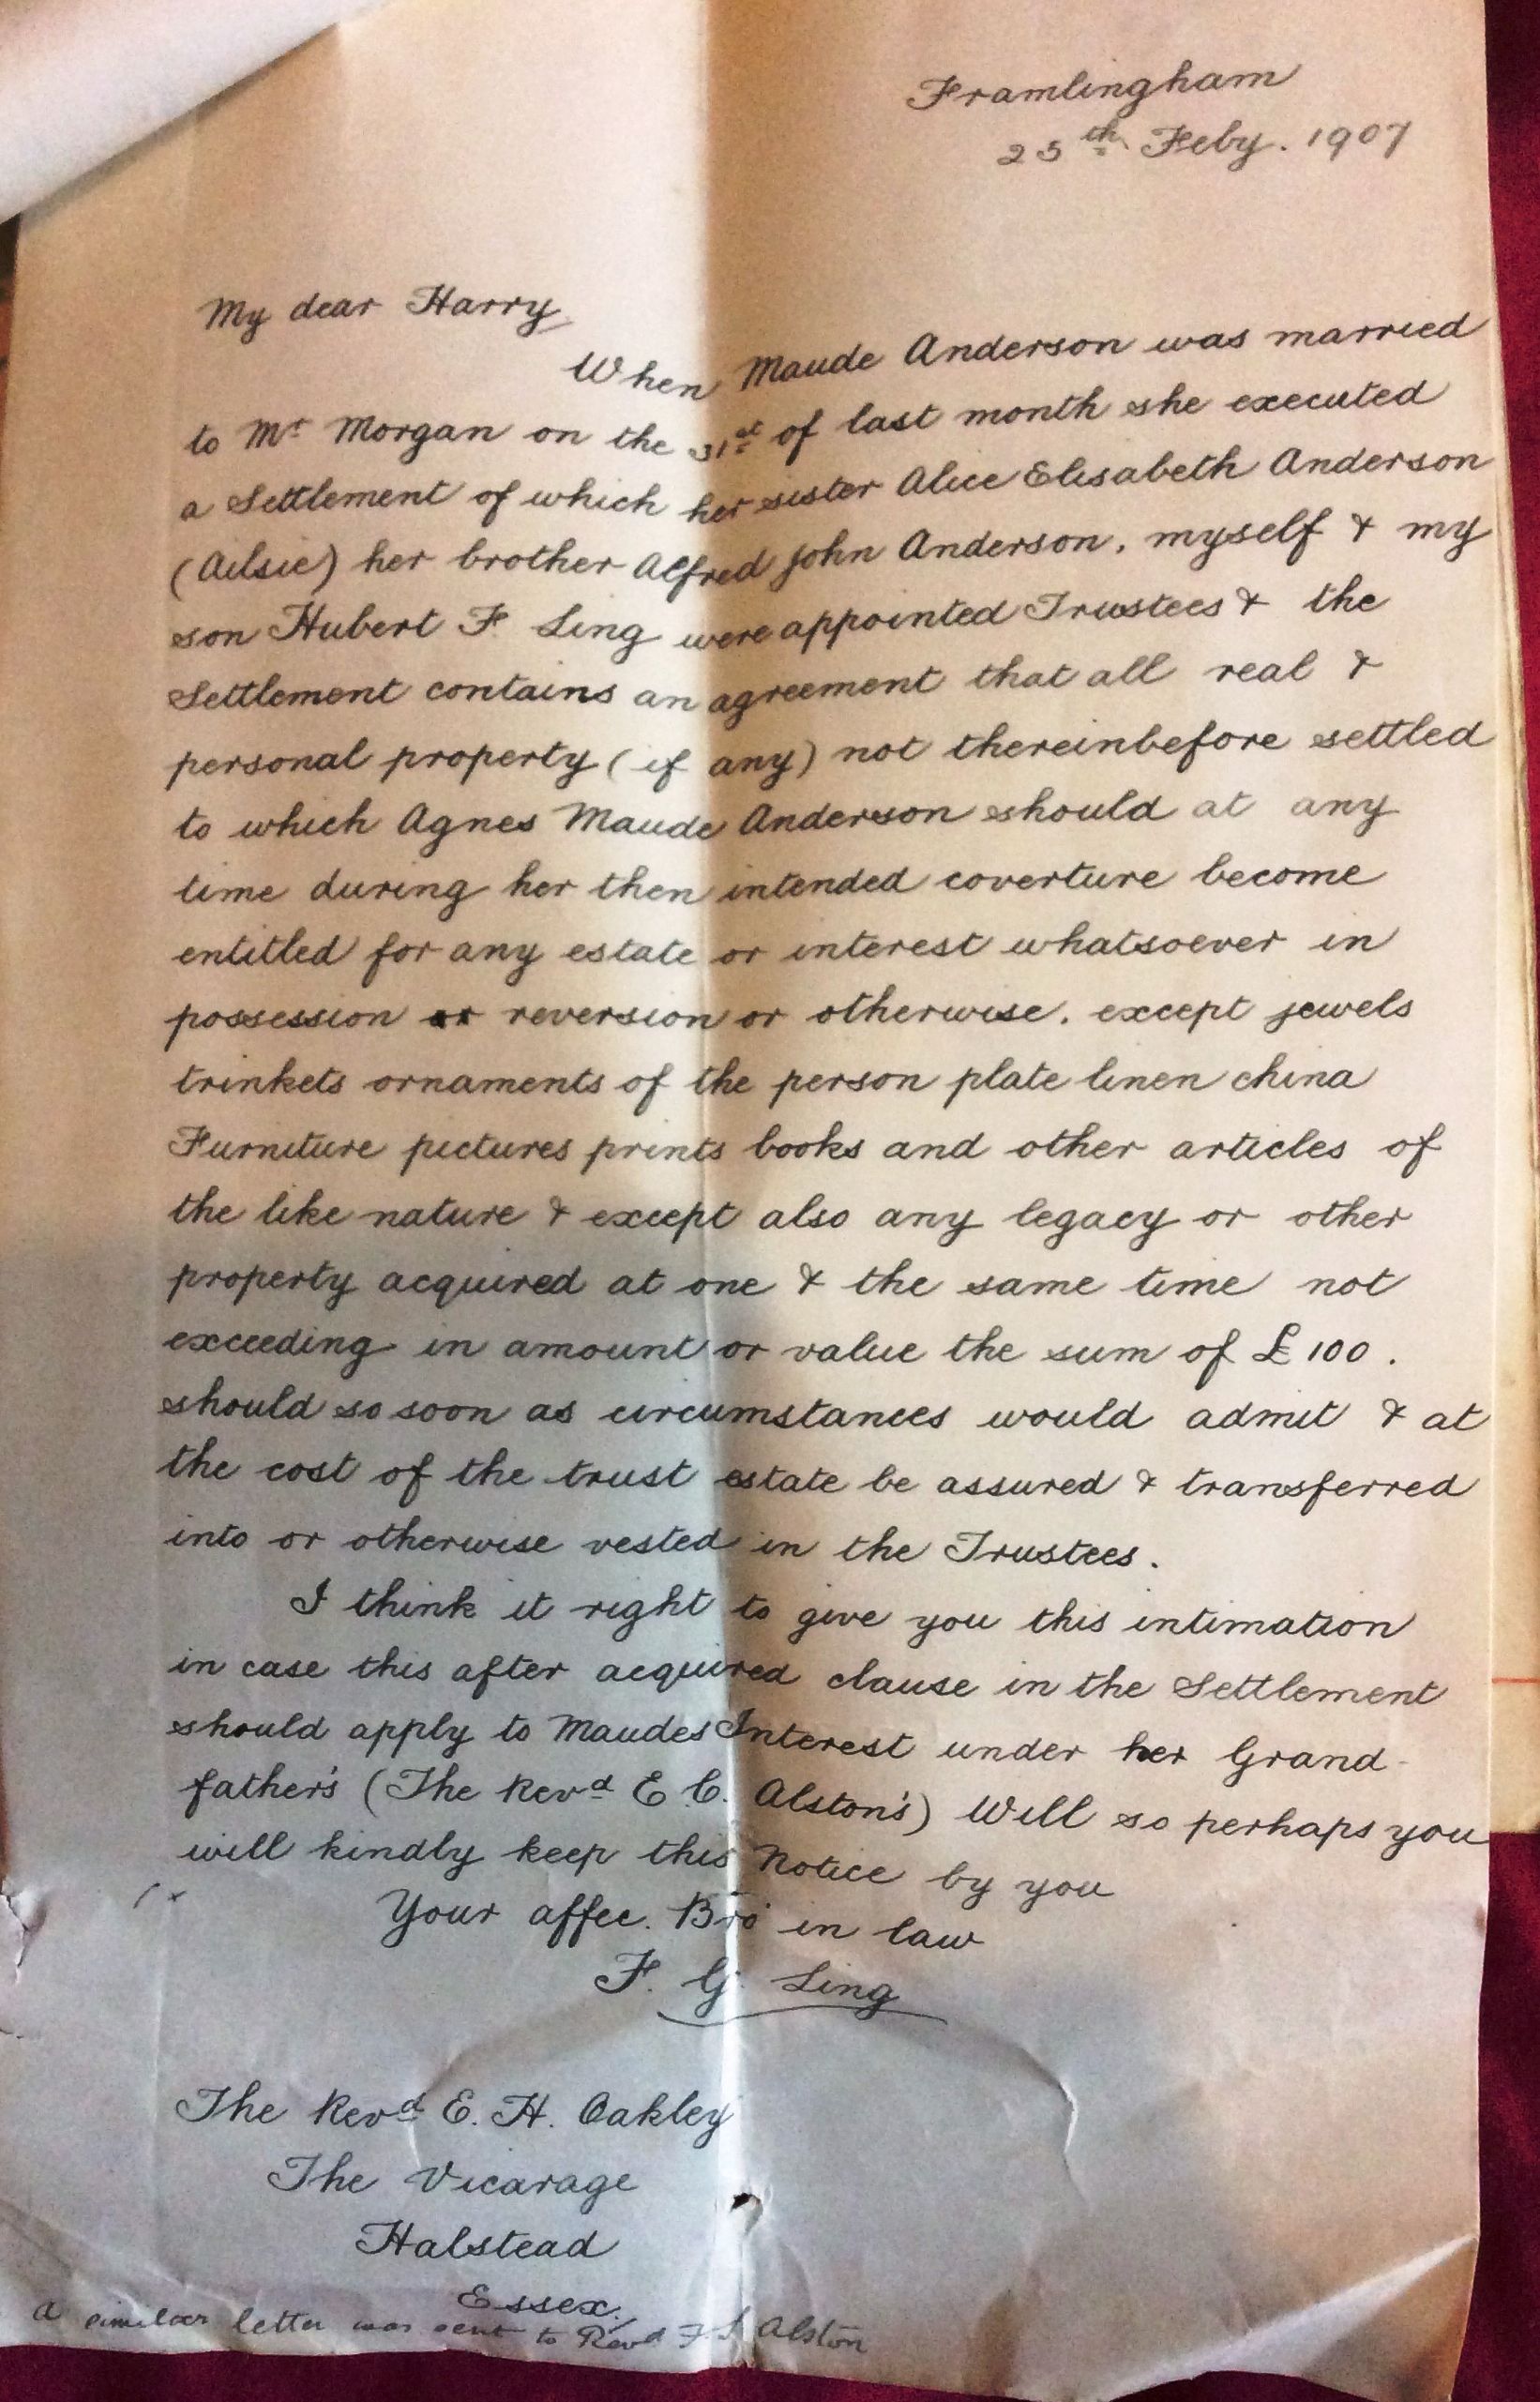 Framlingham
25th Feby. 1907
My dear Harry
When Maude Anderson was married
to Mr Morgan on the 31st of last month she executed
a Settlement of which her sister Alice Elisabeth Anderson
(Ailsie) her brother Alfred John Anderson, myself & my
son Hubert F. Ling were appointed Trustees & the
Settlement contains an agreement that all real &
personal property (if any) not thereinbefore settled
to which Agnes Maude Anderson should at any
time during her then intended coverture become
entitled for any estate or interest whatsoever in
possession or reversion or otherwise, except jewels
trinkets ornaments of the person plate linen china
Furniture pictures prints books and other articles of
the like nature & except also any legacy or other
property acquired at one & the same time not
exceeding in amount or value the sum of £100.
should so soon as circumstances would admit & at
the cost of the trust estate be assured & transferred
into or otherwise vested in the Trustees.
I think it right to give you this intimation
in case this after acquired clause in the Settlement
should apply to Maudes Interest under her Grand-
father's (The Revd E C. Alston's) Will so perhaps you
will kindly keep this Notice by you
Your affec. Bro in law
F. G. Ling
The Revd E. H. Oakley
The Vicarage
Halstead
Essex.
A similar letter was sent to Revd F. S Alston